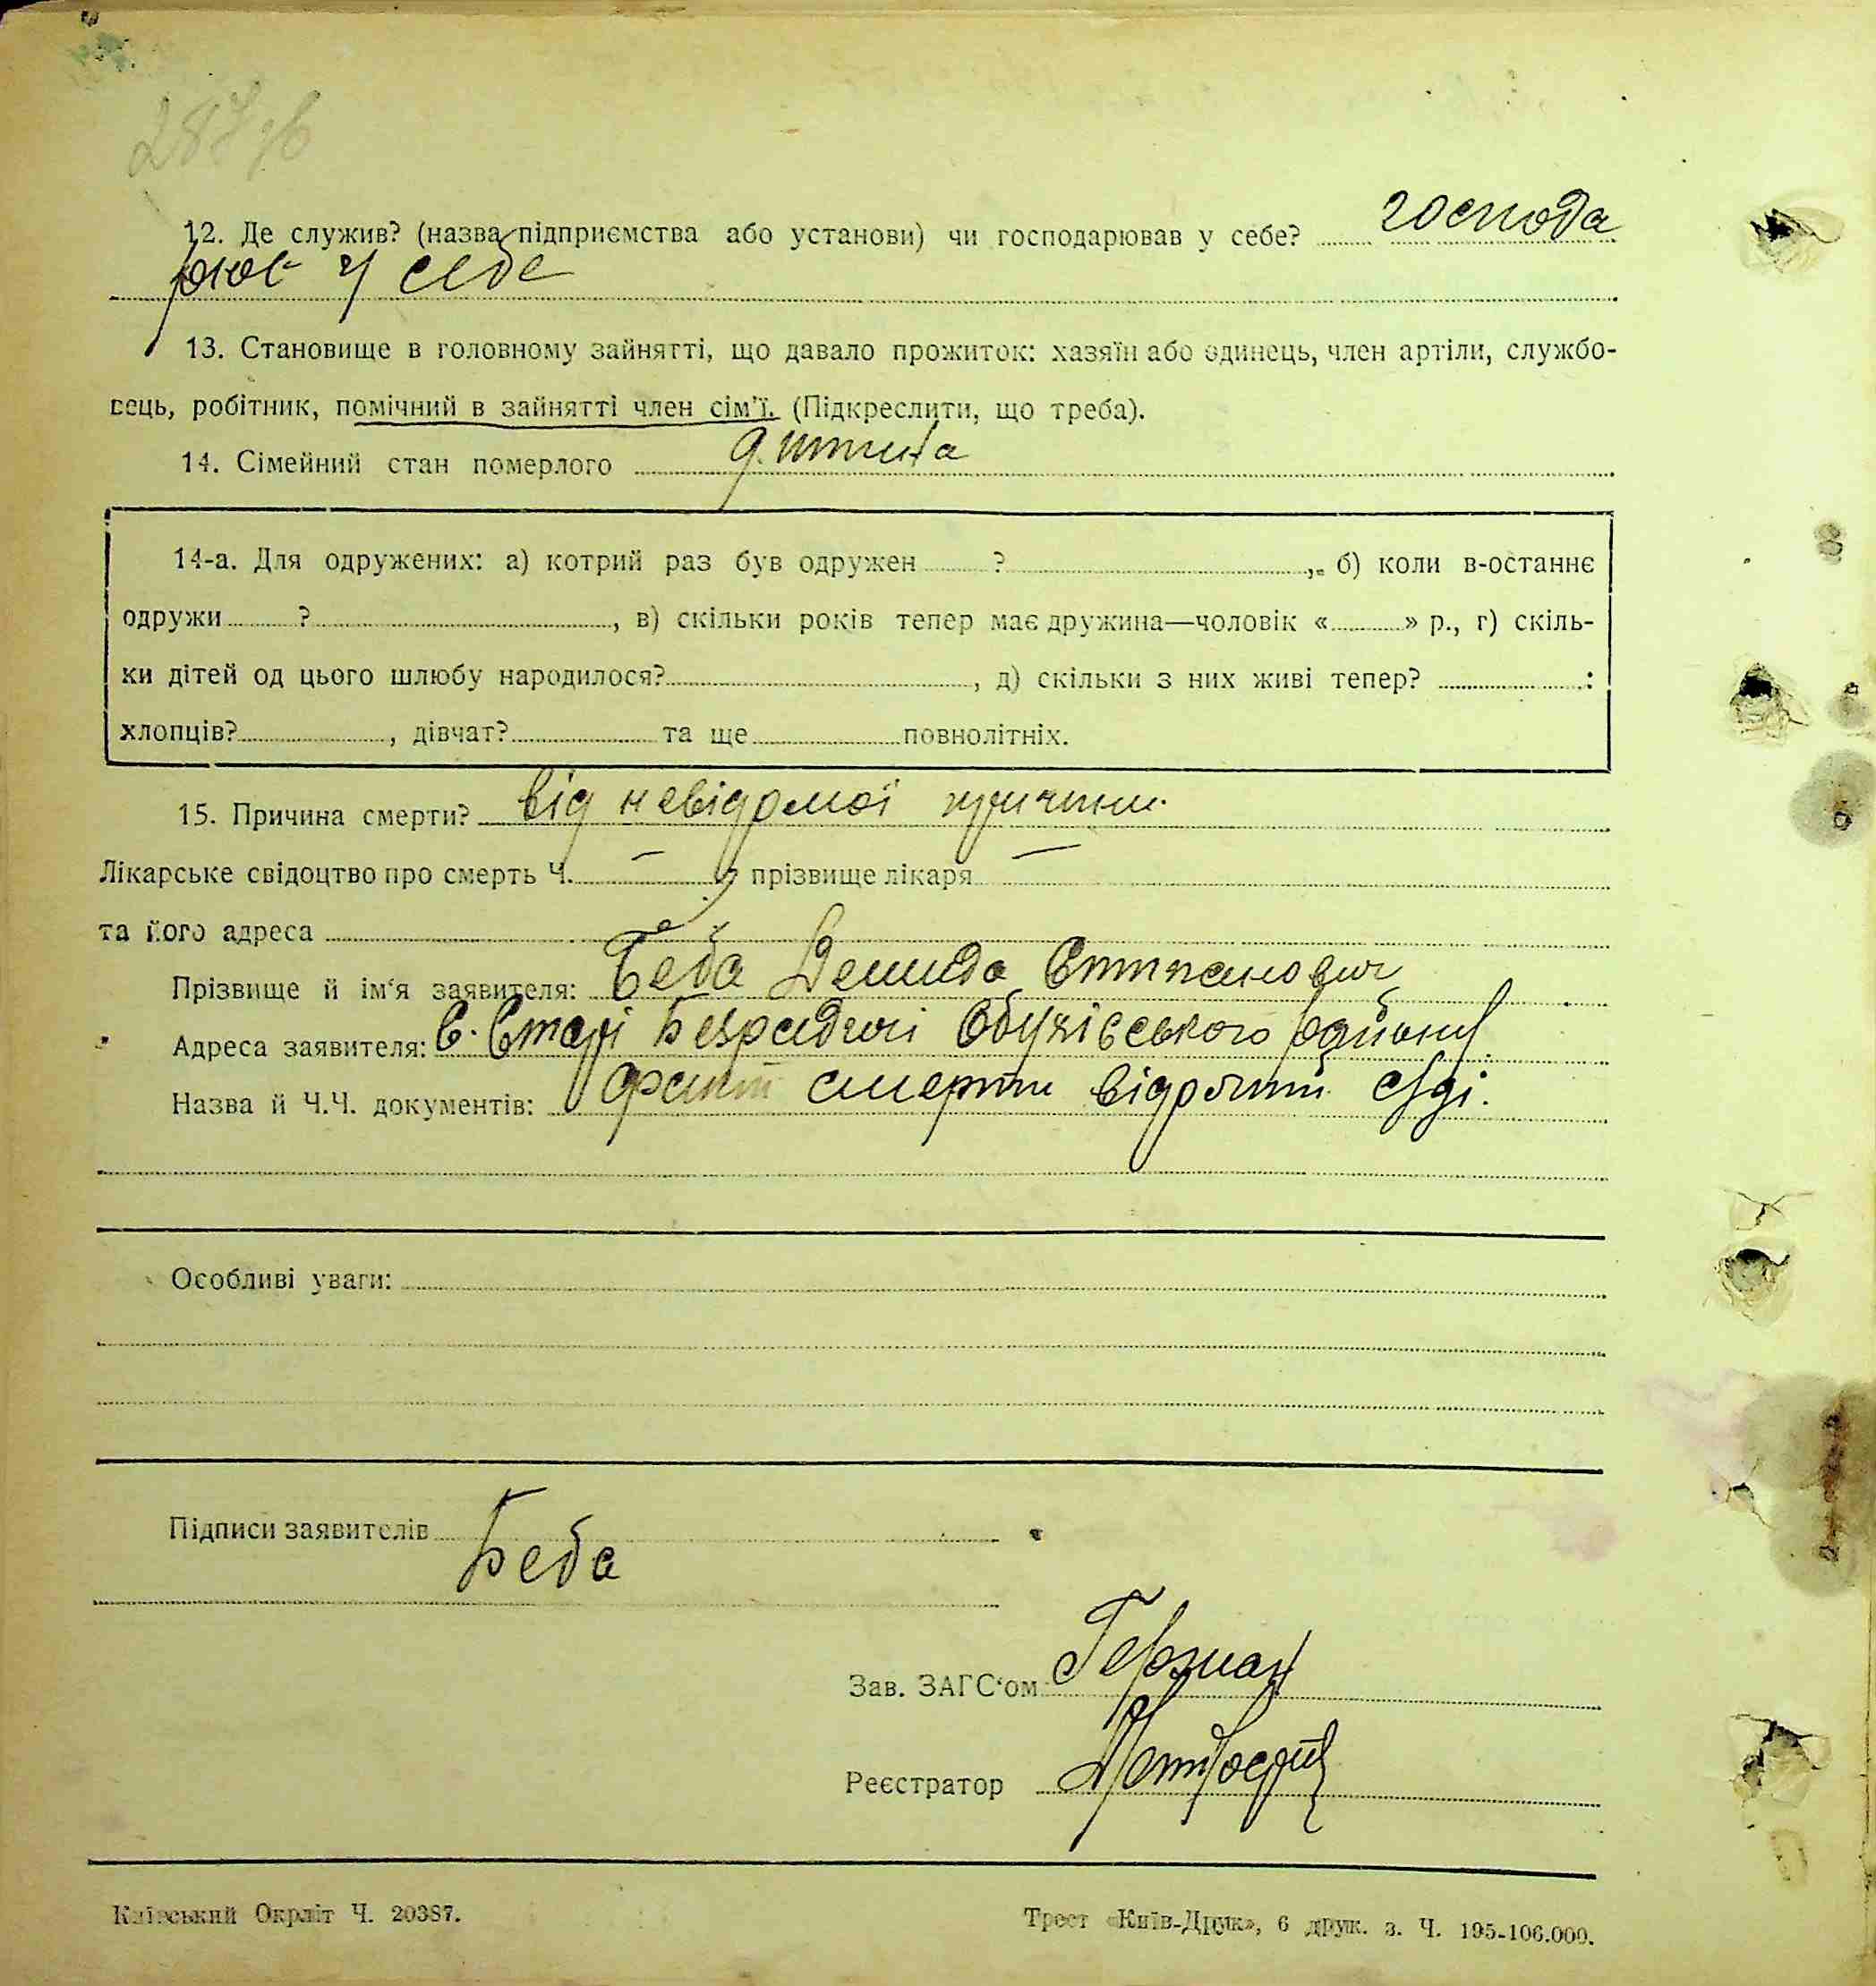 287 зв
12. Де служив? (назва підприємства або установи) чи господарював у себе? господа
рює у себе
13. Становище в головному зайнятті, що давало прожиток: хазяїн або одинець, член артіли, службо-
вець, робітник, помічний в зайнятті член сім'ї. (Підкреслити, що треба).
14. Сімейний стан померлого дитина
14-а. Для одружених: а) котрий раз був одружен ? „ б) коли в-останнє
одружи ? , в) скільки років тепер має дружина—чоловік « » р., г) скіль-
ки дітей од цього шлюбу народилося? , д) скільки з них живі тепер? :
хлопців? , дівчат? та ще повнолітніх.
15. Причина смерти? від невідомої причини.
Лікарське свідоцтво про смерть Ч. — , прізвище лікаря —
та його адреса
Прізвище й ім‘я заявителя: Беба Демида Степанович
Адреса заявителя: С. Старі Безрадичі Обухівського району.
Назва й Ч.Ч. документів: факт смерти відомий сіді.
Особливі уваги:
Підписи заявителів Беба
Зав. ЗАГС‘ом Герман
Реєстратор
Київський Окрліт Ч. 20387.
Трест «Київ-Друк», 6 друк. з. Ч. 195-106.000.